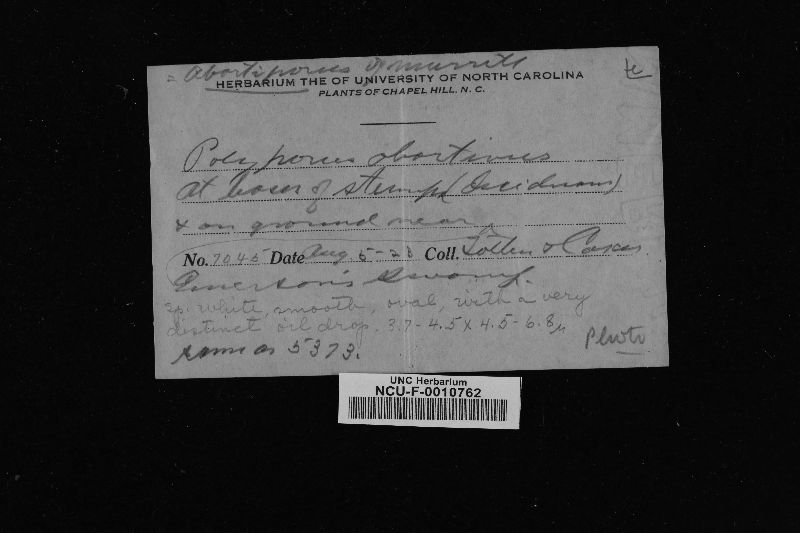 = Abortiporus Murrill
HERBARIUM THE OF UNIVERSITY OF NORTH CAROLINA
PLANTS OF CHAPEL HILL, N. C.
Polyporus abortivus
at base of stump (deciduous)
& on ground near
No. 7045 Date Aug. 5-23 Coll. Totten & Coker
Emerson's Swamp.
Sp. white, smooth, oval, with a very
distinct oil drop. 3.7-4.5 x 4.5-6.8µ
same as 5373.
Photo
UNC Herbarium
NCU-F-0010762